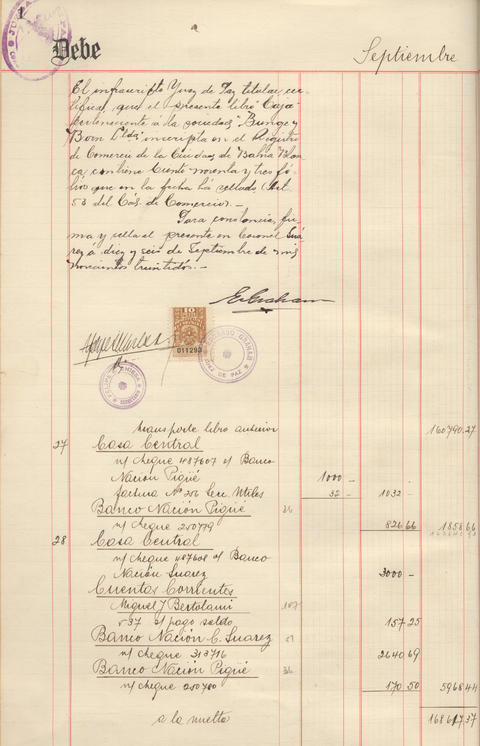 1
Debe
Septiembre
El infrascripto Juez de Paz titular, cer-
tifica, que el presente libro Caja
perteneciente á la sociedad "Bunge y
Born Ltda" inscripta en el Registro
de Comercio de la Ciudad de Bahía Blan-
ca, contiene Ciento noventa y tres fó-
lios que en la fecha há sellado (Art.
53 del Cód. de Comercio). —
Para constancia, fir-
ma y sella el presente en Coronel Suá-
rez á diez y seis de Septiembre de mil
novecientos treintidós. —
E. Graham
10
011293
EDUARDO GRAHAM
JUEZ DE PAZ
transporte libro anterior 160790.27
27 Casa Central
n/ cheque 487607 c/ Banco
Nación Pigüé 1000 —
factura Nº 202 Sec. Utiles 32 — 1032 —
Banco Nación Pigüé 36
n/ cheque 250779 826 66 1858 66
28 Casa Central
n/ cheque 487608 c/ Banco
Nación Suarez 3000 —
Cuentas Corrientes
Miguel J Bertolami 107
s/ pago saldo 157 25
Banco Nación C. Suarez 37
n/ cheque 313716 2640 69
Banco Nación Pigüé 36
n/ cheque 250780 170 50 5968 44
a la vuelta 168617 37